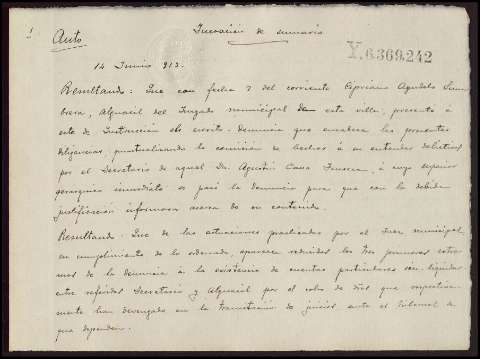 1
Auto
Incoación de sumario
Y.6.369.242
14 Junio 913.
Resultando: Que con fecha 7 del corriente Cipriano Agudelo
brera, Alguacil del Juzgado municipal de esta villa, presentó á
este de Instrucción el escrito-denuncia que encabeza las presentes
diligencias, puntualizando la comisión de hechos á su entender delictivos
por el Secretario de aquel Dn. Agustín Fonseca, á cuyo superior
gerárquico inmediato se pasó la denuncia para que con la debida
justificación informara acerca de su contenido.
Resultando: Que de las actuaciones practicadas por el Juez municipal,
en cumplimiento de lo ordenado, aparecen reducidos los tres primeros extre-
mos de la denuncia á la existencia de cuentas particulares sin liquidar
entre referidos Secretario y Alguacil por el cobro de que respectiva-
mente han devengado en la tramitación de juicios ante el tribunal de
que dependen.